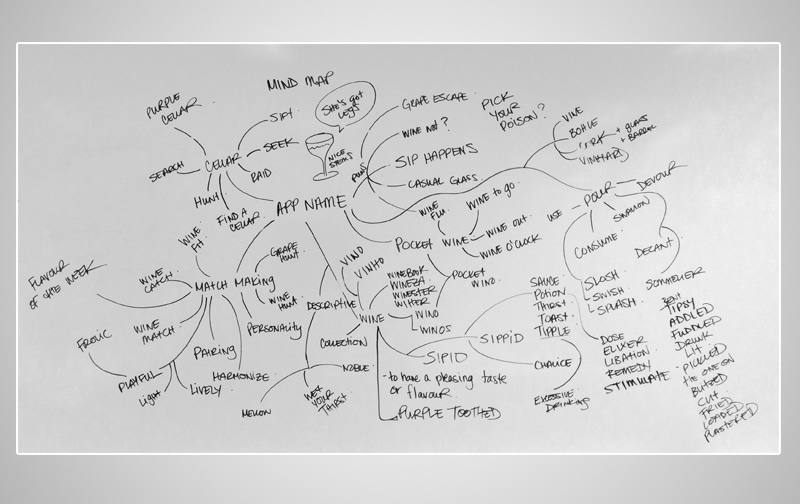 MIND MAP
She's got
legs
NICE
STEMS
PURPLE
CELLAR
SIFT
SEEK
SEARCH
CELLAR
RAID
HUNT
FIND A
CELLAR
APP NAME
PUNS
GRAPE ESCAPE
WINE NOT?
SIP HAPPENS
CASUAL GLASS
PICK
YOUR
POISON?
VINE
BOTTLE
+ GLASS
+ BARREL
VINEYARD
WINE
FLU
WINE TO GO
WINE OUT
WINE O'CLOCK
POCKET
WINE
POCKET
VINO
USE
POUR
DEVOUR
SWALLOW
CONSUME
DECANT
SOMMELIER
SLOSH
SWISH
SPLASH
WINE
FIT
FLAVOUR
OF THE WEEK
WINE
CATCH
MATCH MAKING
GRAPE
HUNT
WINE
HUNT
PERSONALITY
WINE
MATCH
FROLIC
PLAYFUL
LIGHT
LIVELY
PAIRING
HARMONIZE
VINO
VINHO
DESCRIPTIVE
WINEBOOK
WINEZA
WINESTER
WITTER
WINE
VINO
WINOS
COLLECTION
NOBLE
MELLOW
WET
YOUR
THIRST
SIPID
SIPPID
- to have a pleasing taste
or flavour
PURPLE TOOTHED
SAUCE
POTION
THIRST
TOAST
TIPPLE
CHALICE
EXCESSIVE
DRINKING
DOSE
ELIXER
LIBATION
REMEDY
STIMULATE
BENT
TIPSY
ADDLED
FUDDLED
DRUNK
LIT
PICKLED
TIE ONE ON
BLITZED
CUT
FRIED
LOADED
PLASTERED